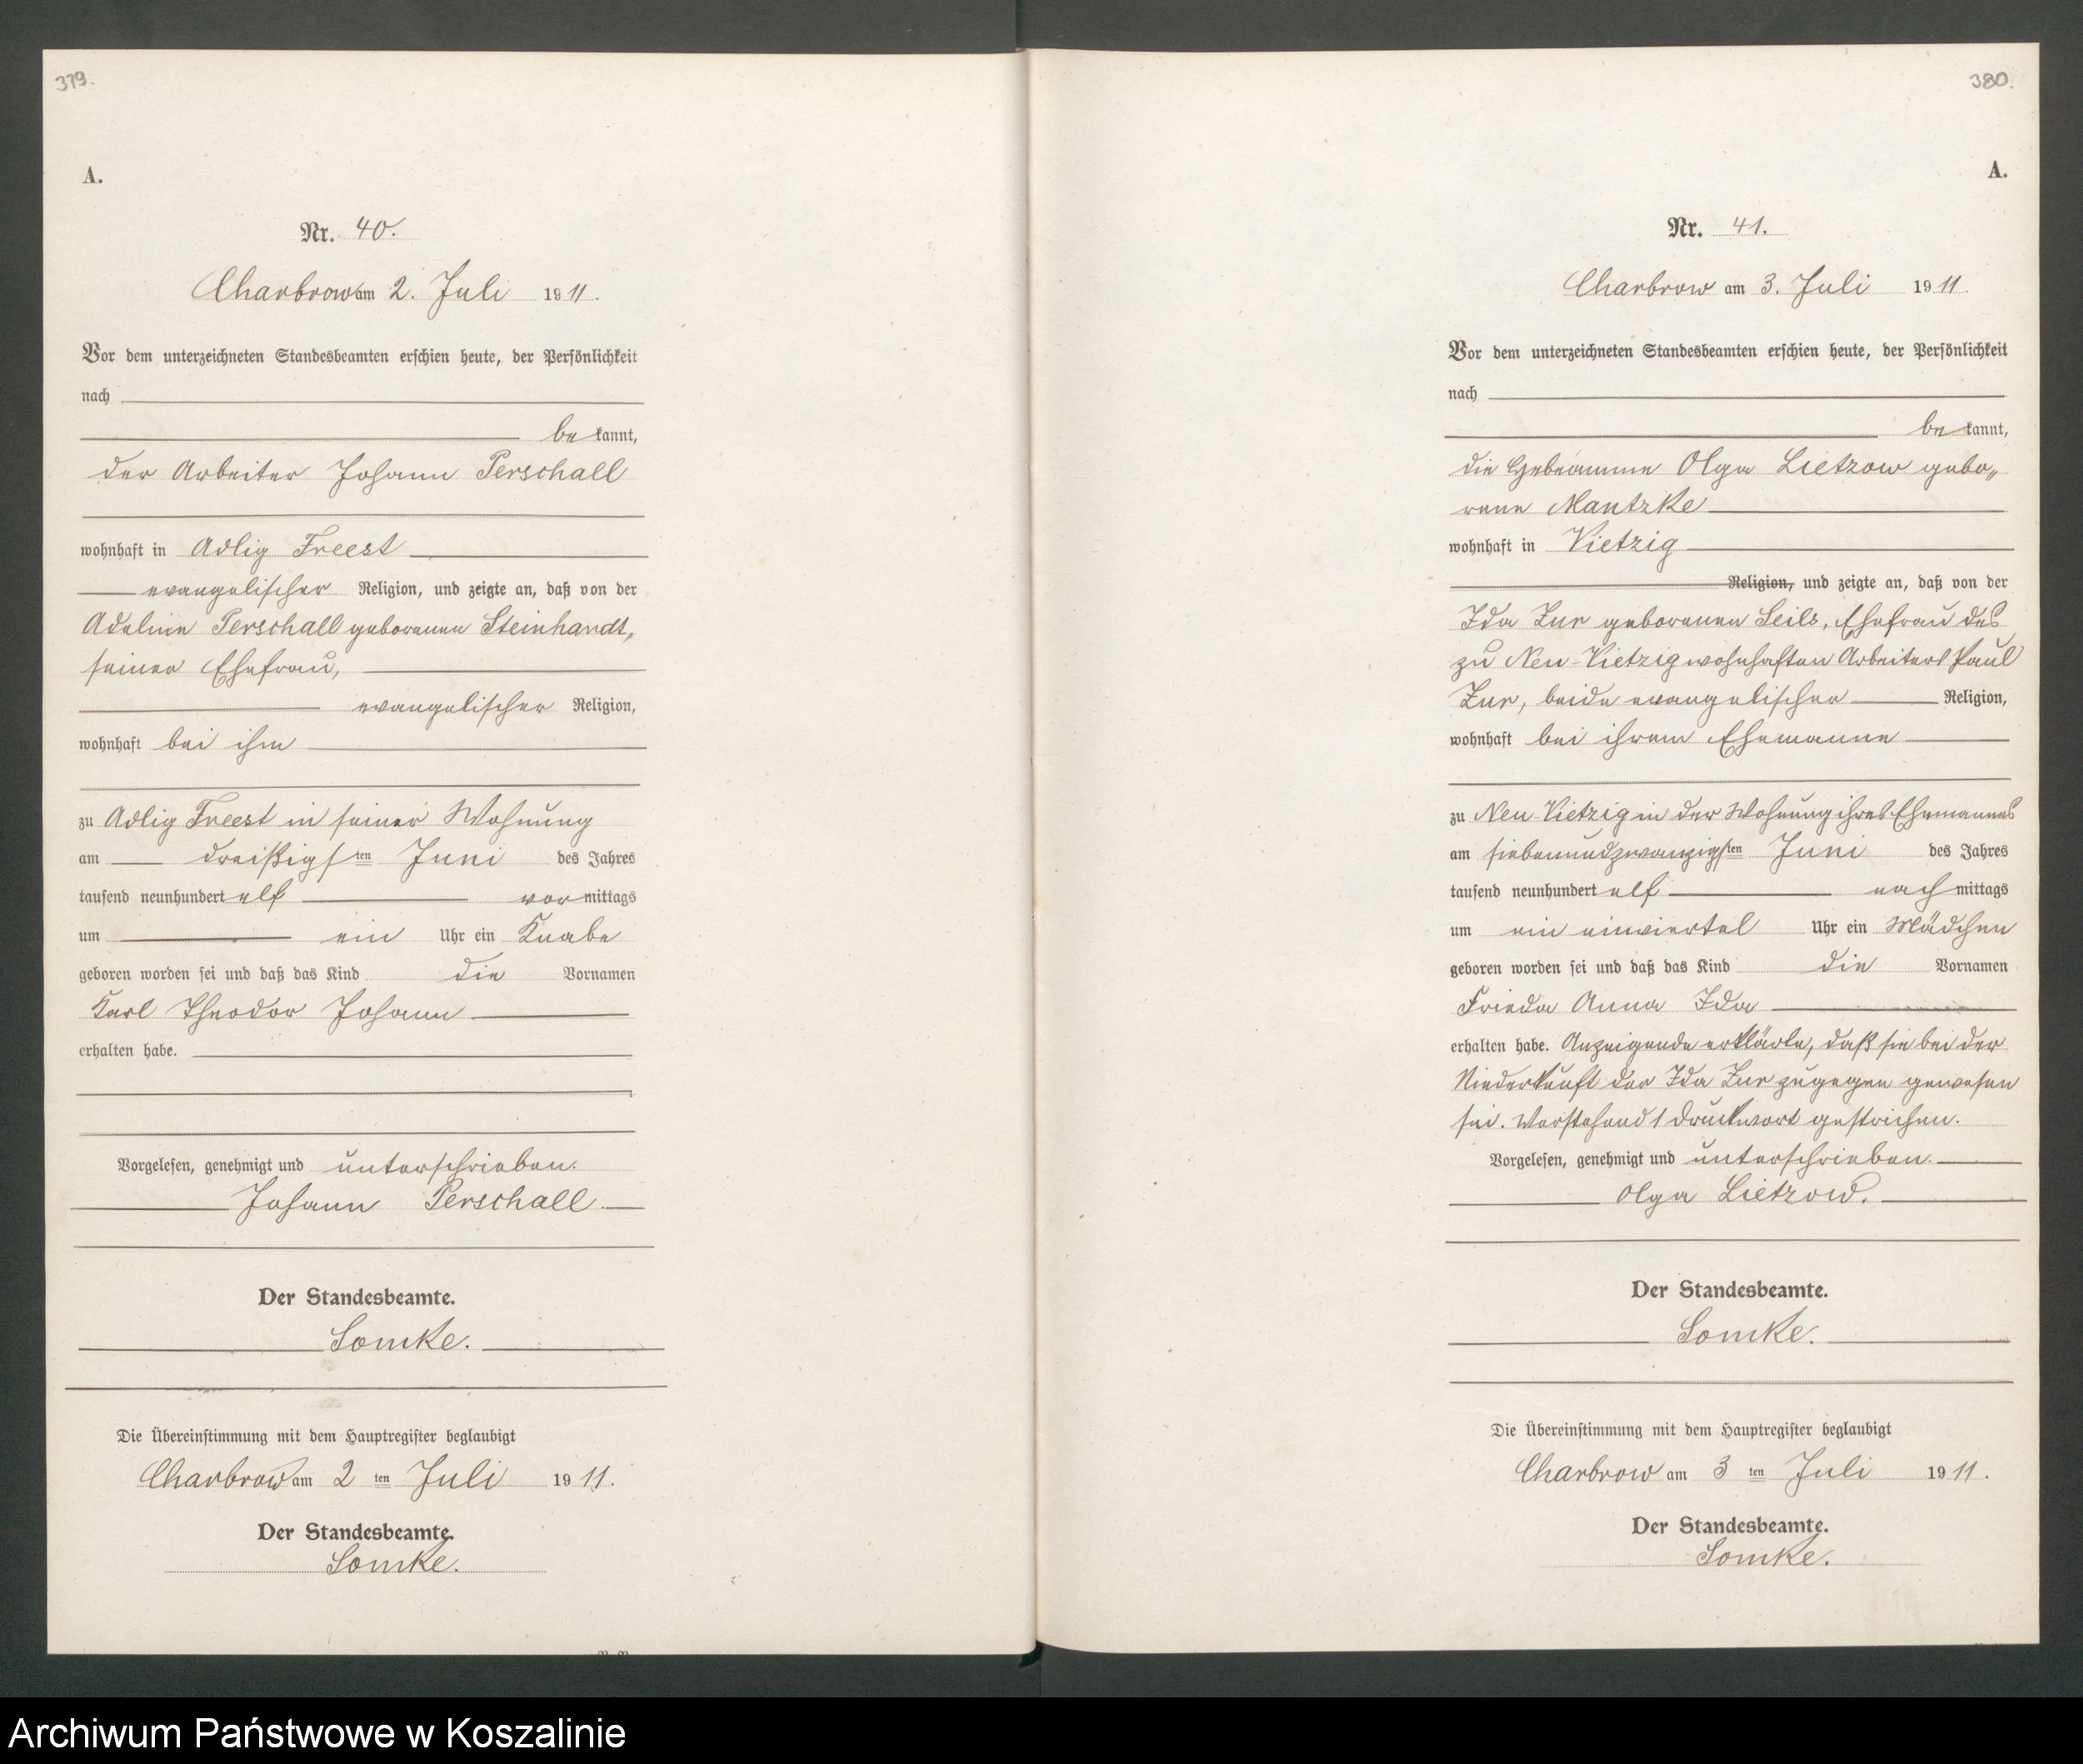 379.
A.
Nr. 40.
Charbrow am 2. Juli 1911.
Vor dem unterzeichneten Standesbeamten erschien heute, der Persönlichkeit
nach
bekannt,
der Arbeiter Johann Perschall
wohnhaft in Adlig Freest
evangelischer Religion, und zeigte an, daß von der
Adeline Perschall geborenen Steinhardt,
seiner Ehefrau,
evangelischer Religion,
wohnhaft bei ihm
zu Adlig Freest in seiner Wohnung
am dreißigsten Juni des Jahres
tausend neunhundert elf vormittags
um ein Uhr ein Knabe
geboren worden sei und daß das Kind die Vornamen
Karl Theodor Johann
erhalten habe.
Vorgelesen, genehmigt und unterschrieben.
Johann Perschall.
Der Standesbeamte.
Somke.
Die Übereinstimmung mit dem Hauptregister beglaubigt
Charbrow am 2 ten Juli 1911.
Der Standesbeamte.
Somke.
380.
A.
Nr. 41.
Charbrow am 3. Juli 1911.
Vor dem unterzeichneten Standesbeamten erschien heute, der Persönlichkeit
nach
bekannt,
die Hebeamme Olga Lietzow gebo„
rene Mantzke
wohnhaft in Vietzig
Religion, und zeigte an, daß von der
Ida Zur geborenen Seils, Ehefrau des
zu Neu-Vietzig wohnhaften Arbeiters Paul
Zur, beide evangelischer Religion,
wohnhaft bei ihrem Ehemanne
zu Neu-Vietzig in der Wohnung ihres Ehemannes
am siebenundzwanzigsten Juni des Jahres
tausend neunhundert elf nachmittags
um ein einviertel Uhr ein Mädchen
geboren worden sei und daß das Kind die Vornamen
Frieda Anna Ida
erhalten habe. Anzeigende erklärte, daß sie bei der
Niederkunft der Ida Zur zugegen gewesen
sei. Vorstehend 1 Druckwort gestrichen.
Vorgelesen, genehmigt und unterschrieben.
Olga Lietzow.
Der Standesbeamte.
Somke.
Die Übereinstimmung mit dem Hauptregister beglaubigt
Charbrow am 3 ten Juli 1911.
Der Standesbeamte.
Somke.
Archiwum Państwowe w Koszalinie